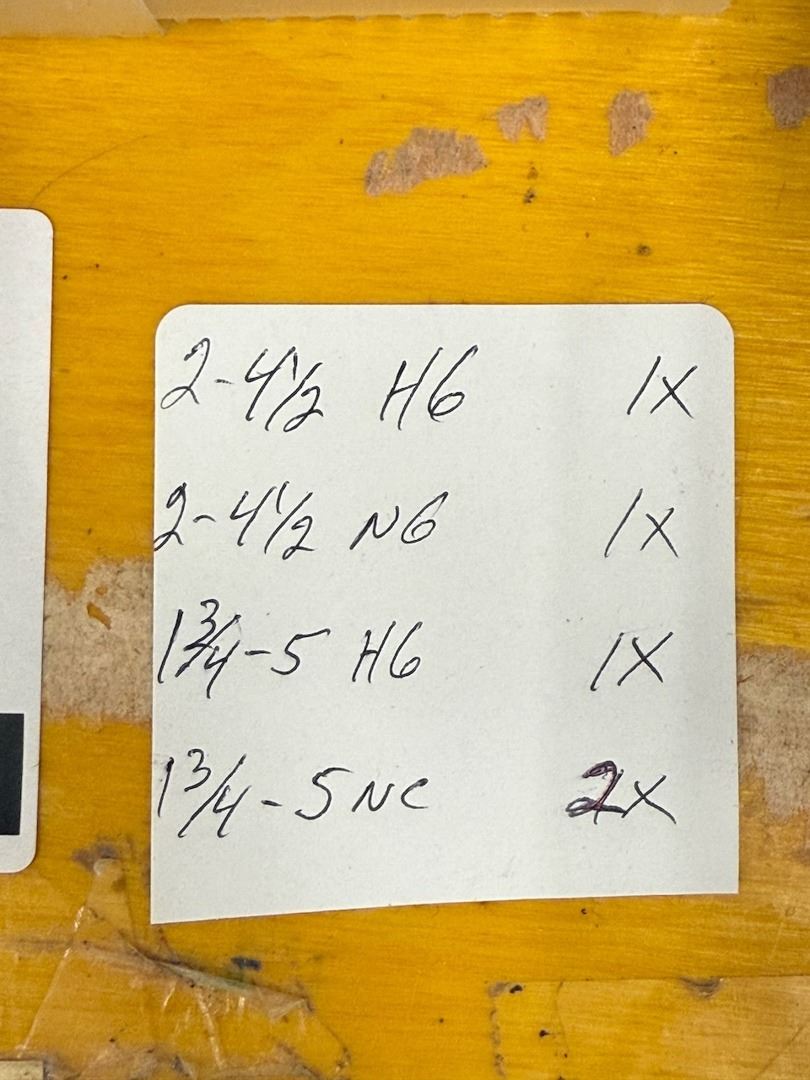 2-4 1/2 H6 1X
2-4 1/2 N6 1X
1 3/4-5 H6 1X
1 3/4-5 NC 2X